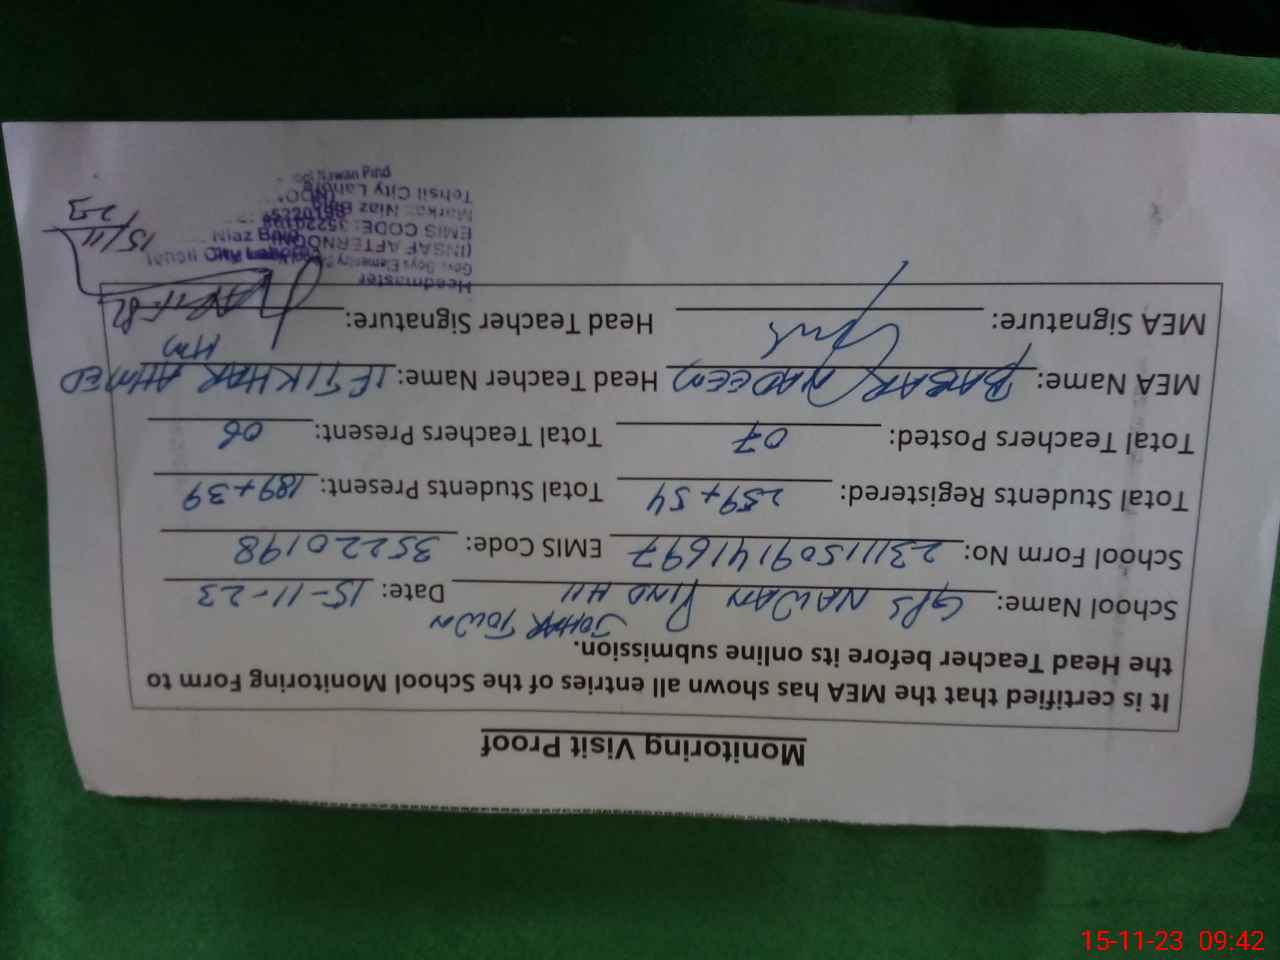 Monitoring Visit Proof
It is certified that the MEA has shown all entries of the School Monitoring Form to
the Head Teacher before its online submission.
JOHAR TOWN
School Name: GPS NAWAN PIND HU Date: 15-11-23
School Form No: 23111509141697 EMIS Code: 35220198
Total Students Registered: 259+54 Total Students Present: 189+39
Total Teachers Posted: 07 Total Teachers Present: 06
MEA Name: BABAR NADEEM Head Teacher Name: IFTIKHAR AHMED
HM
MEA Signature: Head Teacher Signature:
15/11/23
Headmaster
Govt. Boys Elementry
(INSAF AFTERNOON)
EMIS CODE: 35220198
Markaz Niaz Baig
Tehsil City Lahore
Nawan Pind
15-11-23 09:42